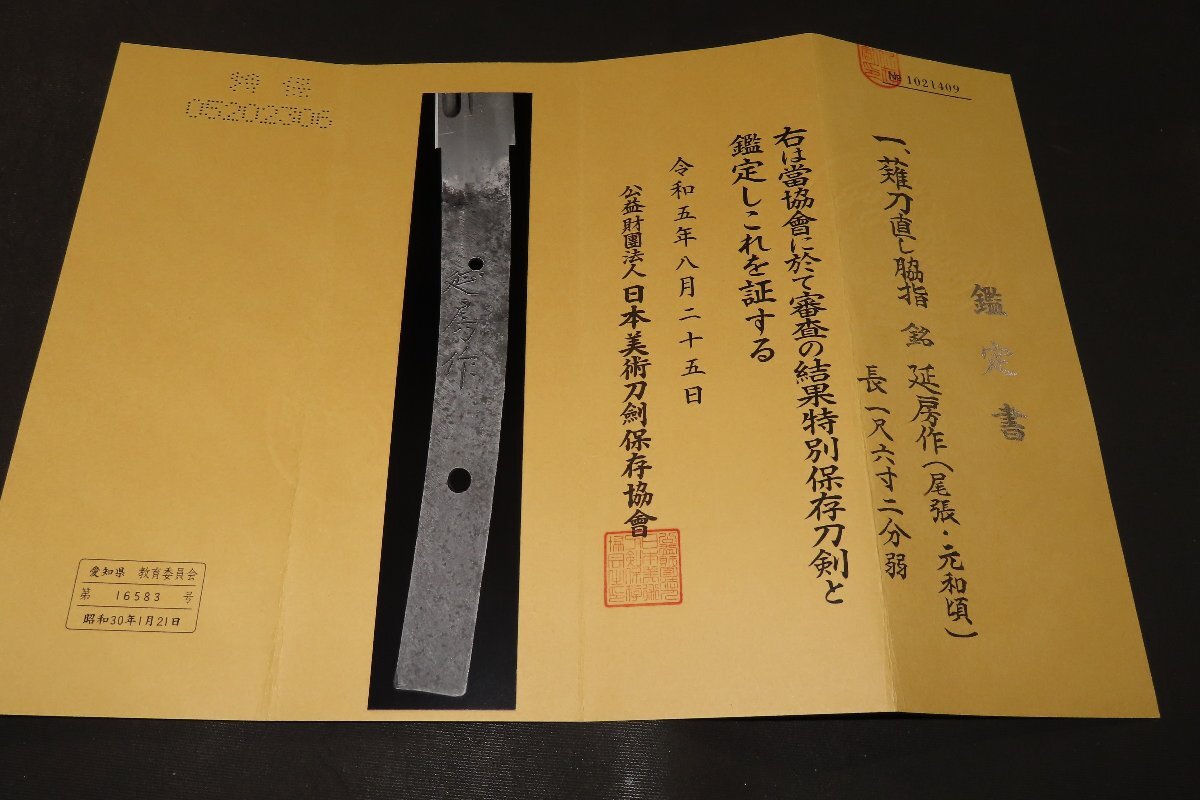 鑑定書
№ 1021409
一、薙刀直し脇指 銘 延房作(尾張・元和頃)
長一尺六寸二分弱
右は當協會に於て審査の結果特別保存刀剣と
鑑定しこれを証する
令和五年八月二十五日
公益財團法人日本美術刀劍保存協會
延房作
特保
05202306
愛知県 教育委員会
第 16583 号
昭和30年1月21日